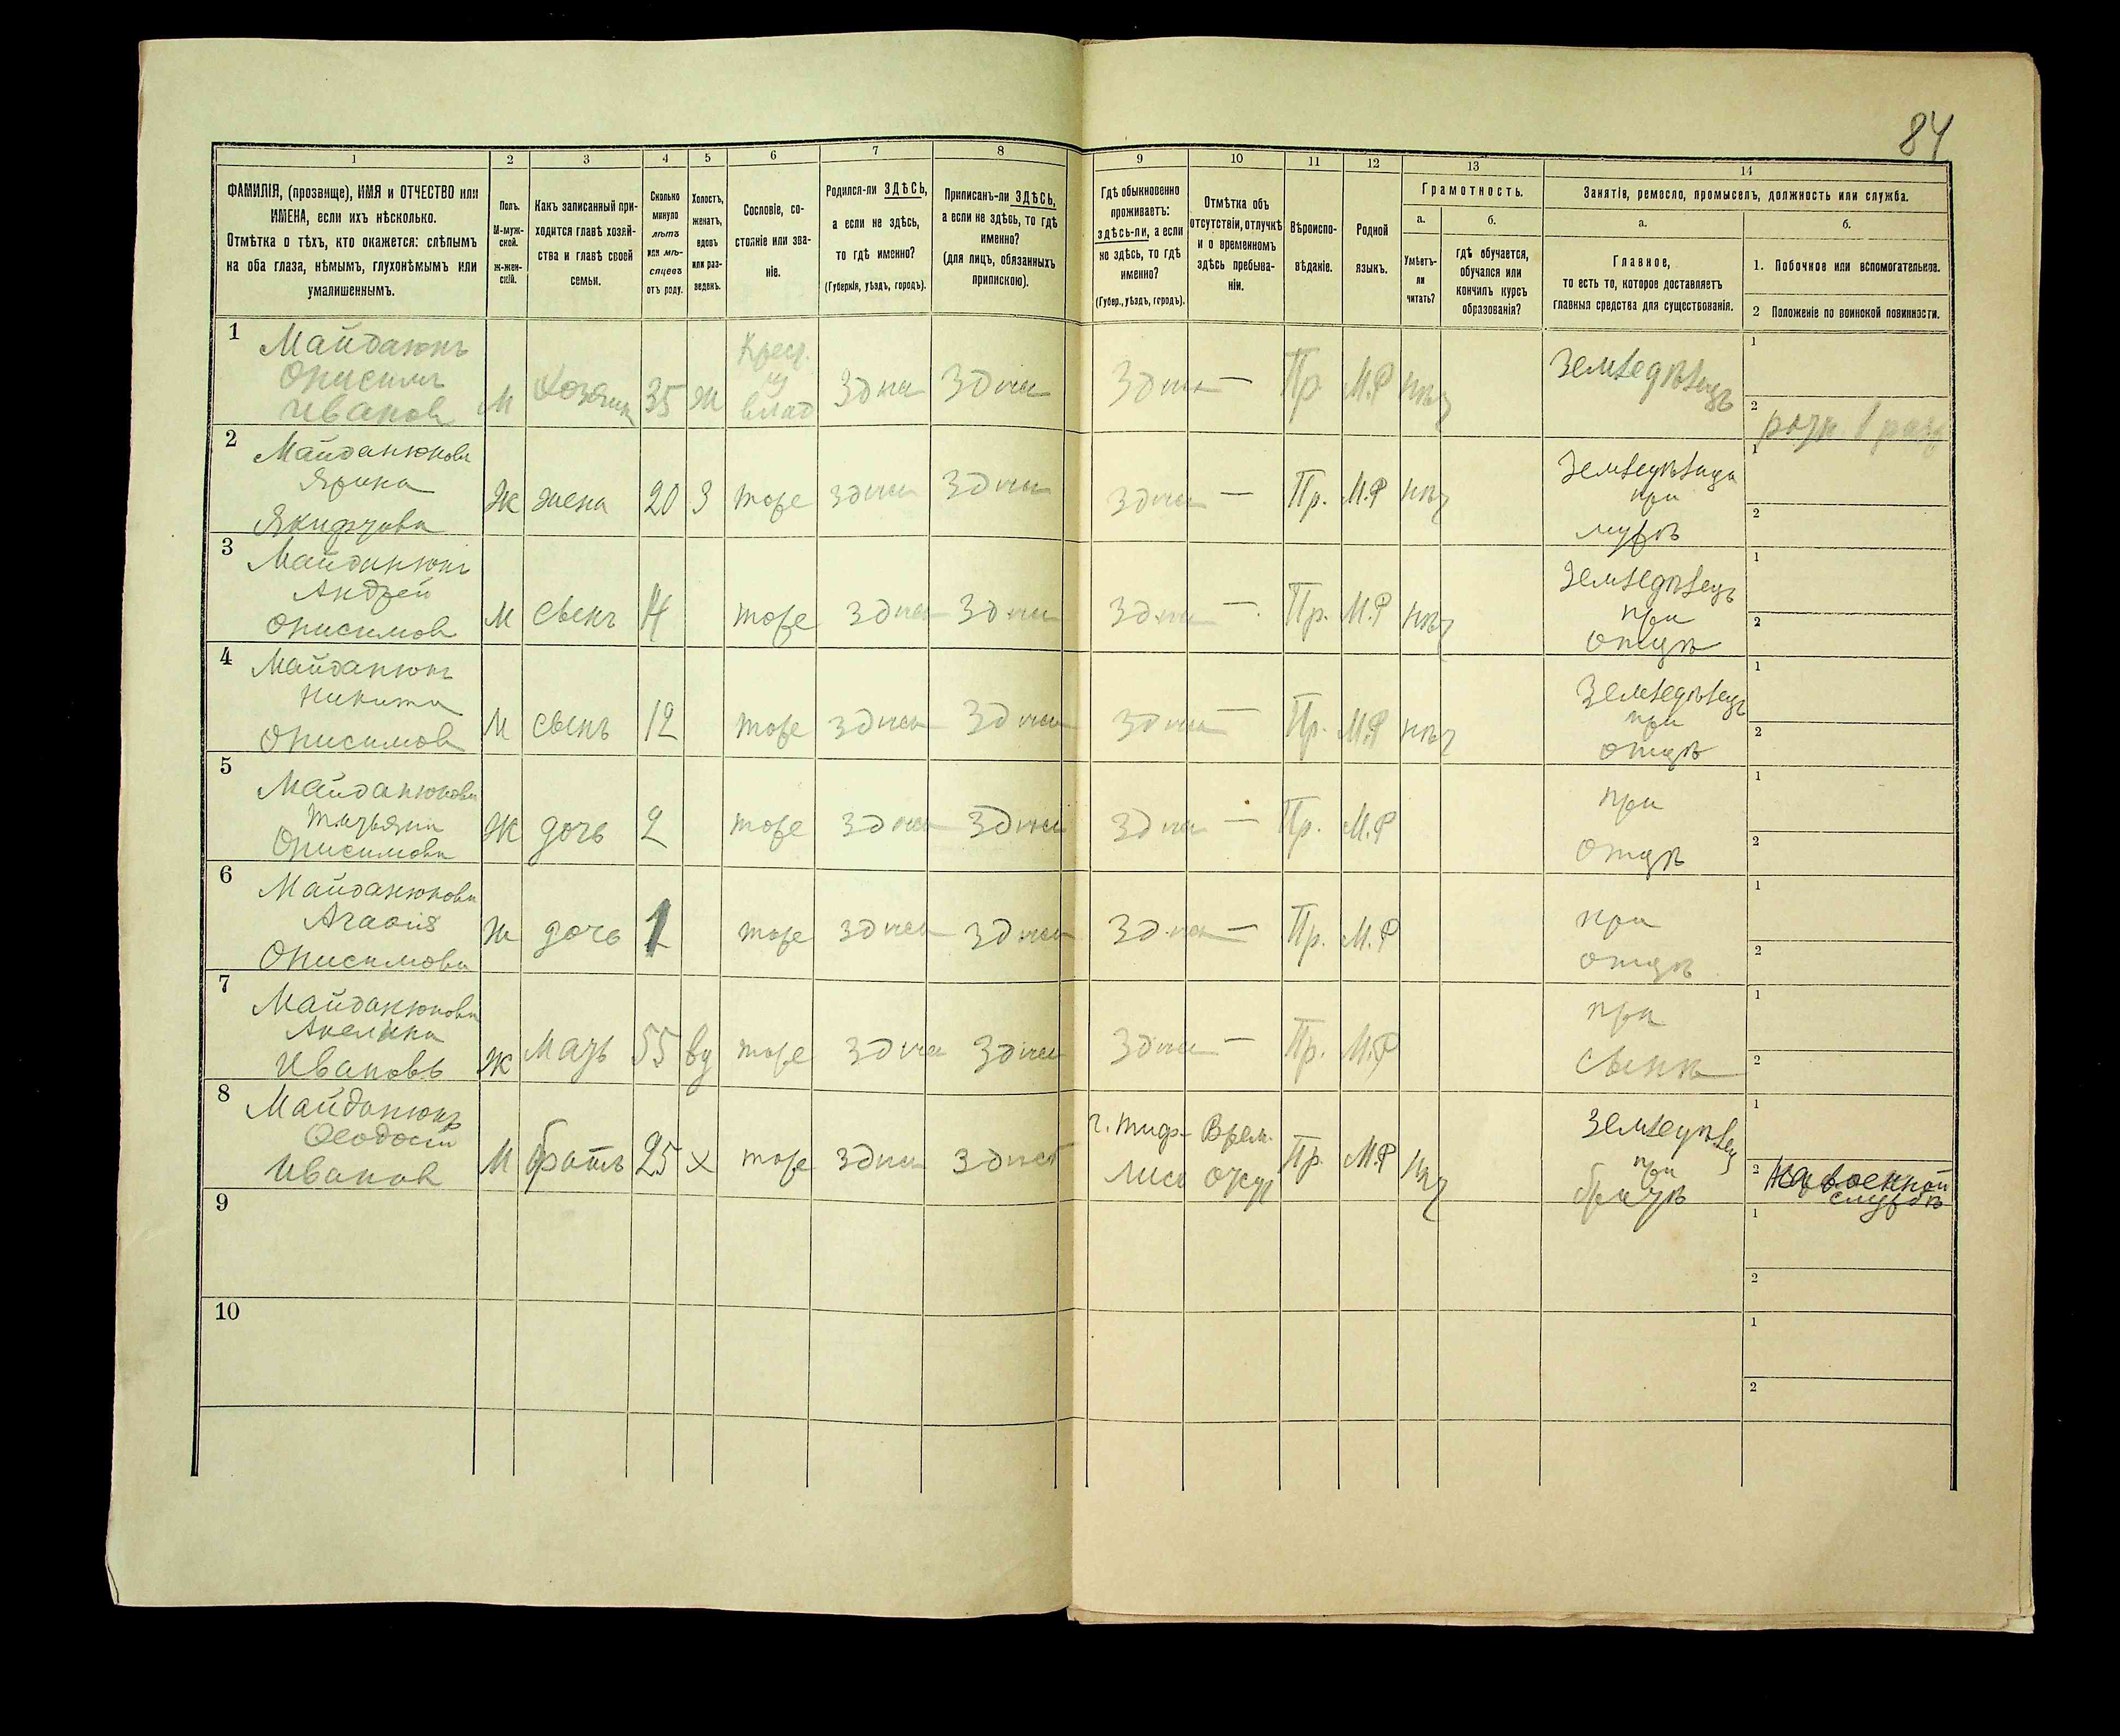 84
1 2 3 4 5 6 7 8 9 10 11 12 13 14
ФАМИЛІЯ, (прозвище), ИМЯ и ОТЧЕСТВО или
ИМЕНА, если ихъ нѣсколько.
Отмѣтка о тѣхъ, кто окажется: слѣпымъ
на оба глаза, нѣмымъ, глухонѣмымъ или
умалишеннымъ.
Полъ.
М-муж-
ской.
ж-жен-
скій.
Какъ записанный при-
ходится главѣ хозяй-
ства и главѣ своей
семьи.
Сколько
минуло
лѣтъ
или мѣ-
сяцевъ
отъ роду.
Холостъ,
женатъ,
вдовъ
или раз-
веденъ.
Сословіе, со-
стояніе или зва-
ніе.
Родился-ли ЗДѢСЬ,
а если не здѣсь,
то гдѣ именно?
(Губернія, уѣздъ, городъ).
Приписанъ-ли ЗДѢСЬ,
а если не здѣсь, то гдѣ
именно?
(для лицъ, обязанныхъ
припискою).
Гдѣ обыкновенно
проживаетъ:
здѣсь-ли, а если
не здѣсь, то гдѣ
именно?
(Губер., уѣздъ, городъ).
Отмѣтка объ
отсутствіи, отлучкѣ
и о временномъ
здѣсь пребыва-
ніи.
Вѣроиспо-
вѣданіе.
Родной
языкъ.
Грамотность.
а.
Умѣетъ-
ли
читать?
б.
гдѣ обучается,
обучался или
кончилъ курсъ
образованія?
Занятія, ремесло, промыселъ, должность или служба.
а.
Главное,
то есть то, которое доставляетъ
главныя средства для существованія.
б.
1. Побочное или вспомогательное.
2 Положеніе по воинской повинности.
1
Майданюкъ
Онисимъ
Ивановъ
М Хозяинъ 35 Ж
Крест.
из
влад
Здись Здись Здись — Пр М.Р нѣт
Земледѣлецъ
1
2
2
Майданюкова
Ярина
Ж жена 20 З тоже здись здись здись — Пр. М.Р нѣт
Земледѣлица
при
мужѣ
1
2
3
Майданюкъ
Андрей
Онисимов
М сынъ 14 тоже здись здись здись — Пр. М.Р нѣт
Земледѣлецъ
при
отцѣ
1
2
4
Майданюкъ
Никита
Онисимов
М сынъ 12 тоже здись здись здись — Пр. М.Р нѣт
Земледѣлецъ
при
отцѣ
1
2
5
Майданюкова
Татьяна
Онисимова
Ж дочь 2 тоже здись здись здись — Пр. М.Р
при
отцѣ
1
2
6
Майданюкова
Онисимова
Ж дочь 1 тоже здись здись здись — Пр. М.Р
при
отцѣ
1
2
7
Майданюкова
Акелина
Ивановъ
Ж Мать 55 вд тоже здись здись здись — Пр. М.Р
при
сынѣ
1
2
8
Майданюкъ
Ѳеодосій
Иванов
М братъ 25 х тоже здись здись
г. Тиф-
лисъ
Врем.
отсут
Пр. М.Р нѣт
Земледѣлец
при
братѣ
1
2 На военной
службѣ
9
1
2
10
1
2